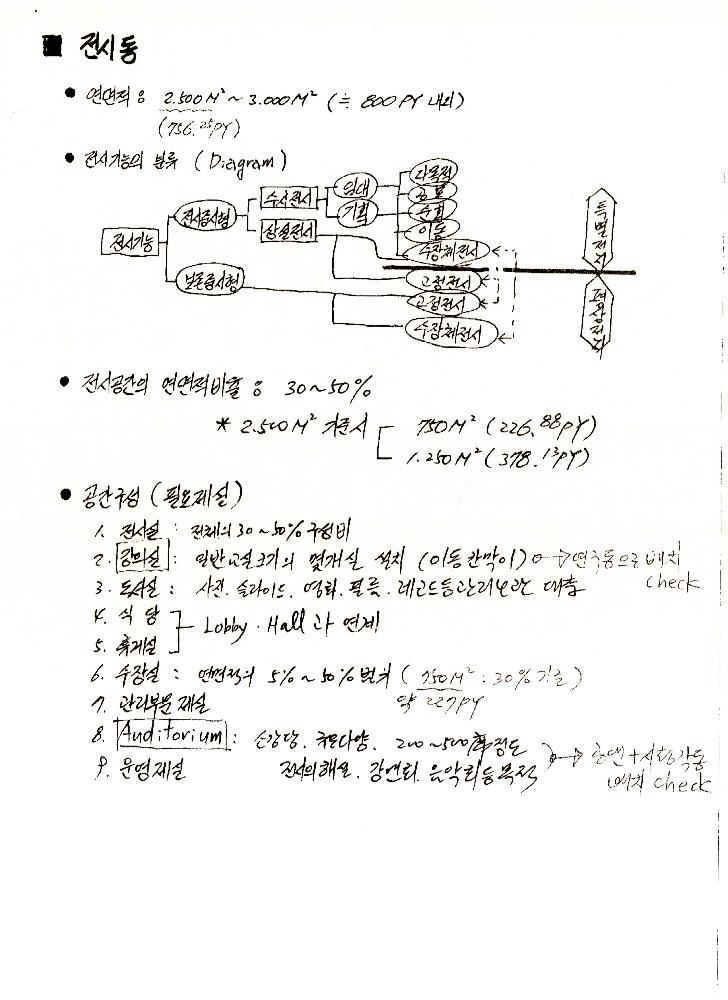 ■ 전시동
● 연면적 : 2.500M² ~ 3.000M² (≒ 800PY 내외)
(756.25PY)
● 전시기능의 분류 (Diagram)
전시기능
전시중시형
보존중시형
수시전시
상설전시
임대
기획
다목적
공모
수집
이동
수장체전시
고정전시
고정전시
수장체전시
특별전시
평상전시
● 전시공간의 연면적비율 : 30~50%
* 2.500M² 기준시 750M² (226.88PY)
1.250M² (378.13PY)
● 공간구성 (필요제실)
1. 전시실 : 전체의 30~50% 구성비
2. 강의실 : 일반교실크기의 몇개실 설치 (이동칸막이) → 연구동으로 배치 check
3. 도서실 : 사진. 슬라이드. 영화. 필름. 레코드등 관리보관 대출
4. 식당
5. 휴게실
Lobby. Hall과 연계
6. 수장실 : 연면적의 5%~50% 범위 (750M² : 30% 기준)
약 227PY
7. 관리부문 제실
8. Auditorium : 소강당. 규모다양. 200~500席정도
전시의해설. 강연회. 음악회등 목적
→ 공연+시청각동 배치 check
9. 운영제실